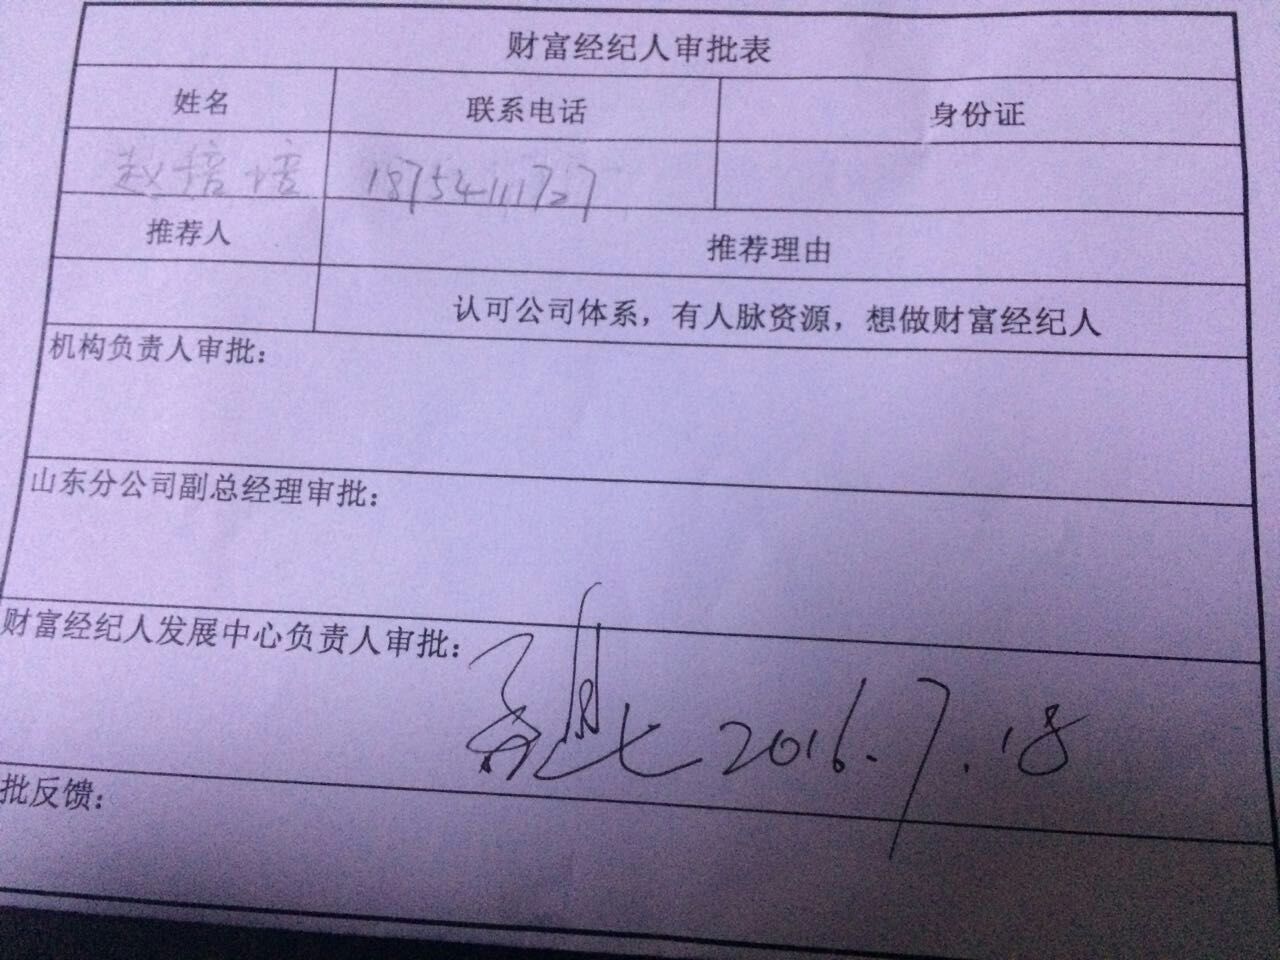 财富经纪人审批表
姓名 联系电话 身份证
赵培培 18754111727
推荐人 推荐理由
认可公司体系，有人脉资源，想做财富经纪人
机构负责人审批：
山东分公司副总经理审批：
财富经纪人发展中心负责人审批：
2016.7.18
批反馈：